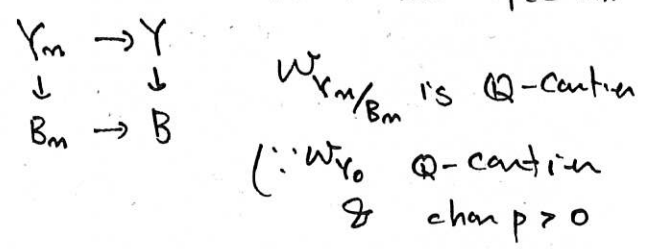 Yₘ → Y
↓ ↓
Bₘ → B
ω_{Yₘ/Bₘ} is Q-Cartier
(∵ ω_{Y₀} Q-Cartier
& char p > 0